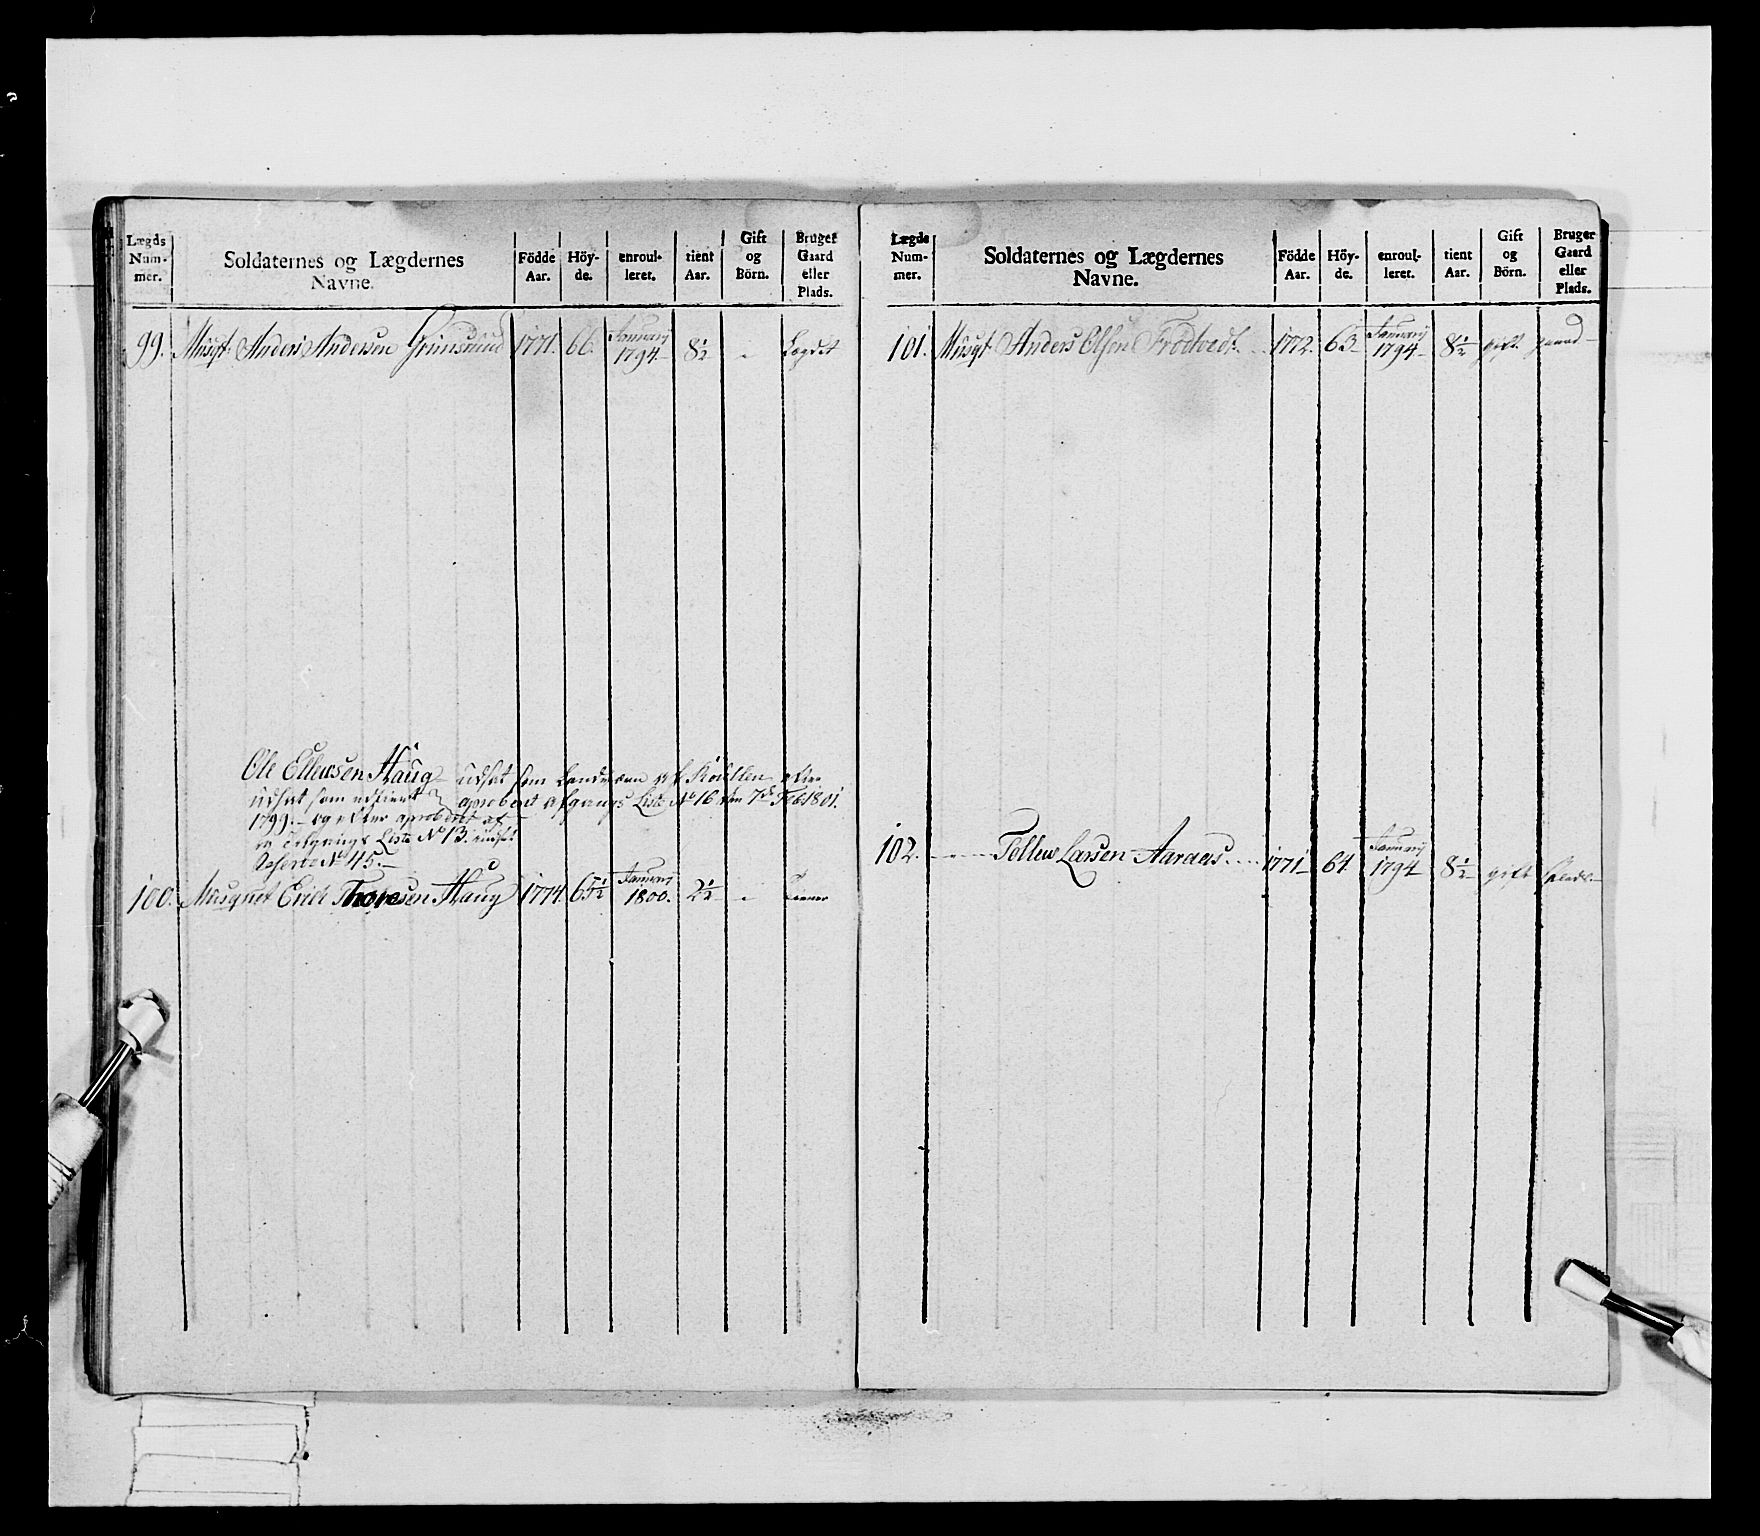 Lægds Num-mer. Soldaternes og Lægdernes Navne. Födde Aar. Höy-de. enroul-leret. tient Aar. Gift og Börn. Bruger Gaard eller Plads.
99. Musqt. Anders Andersen Grimsrud 1771. 66. January 1794 8½ -
Ole Ellewsen Haug udsat som Landværn
udsat som udtient aproberet afgangs Liste No 16 den 7de Feb 1801.
1799. og efter aproberet af-
Liste No 13. indsat
No 45.
100. Musquet Erich Thoresen Haug 1774. 65½ January 1800. 2½ - Tiener
Lægds Num-mer. Soldaternes og Lægdernes Navne. Födde Aar. Höy-de. enroul-leret. tient Aar. Gift og Börn. Bruger Gaard eller Plads.
101. Musqt Anders Olsen Frödtvedt 1772. 63 January 1794 8½ gift. gaard
102. Tellew Larsen Aaraas 1771 64 January 1794 8½ gift Plads